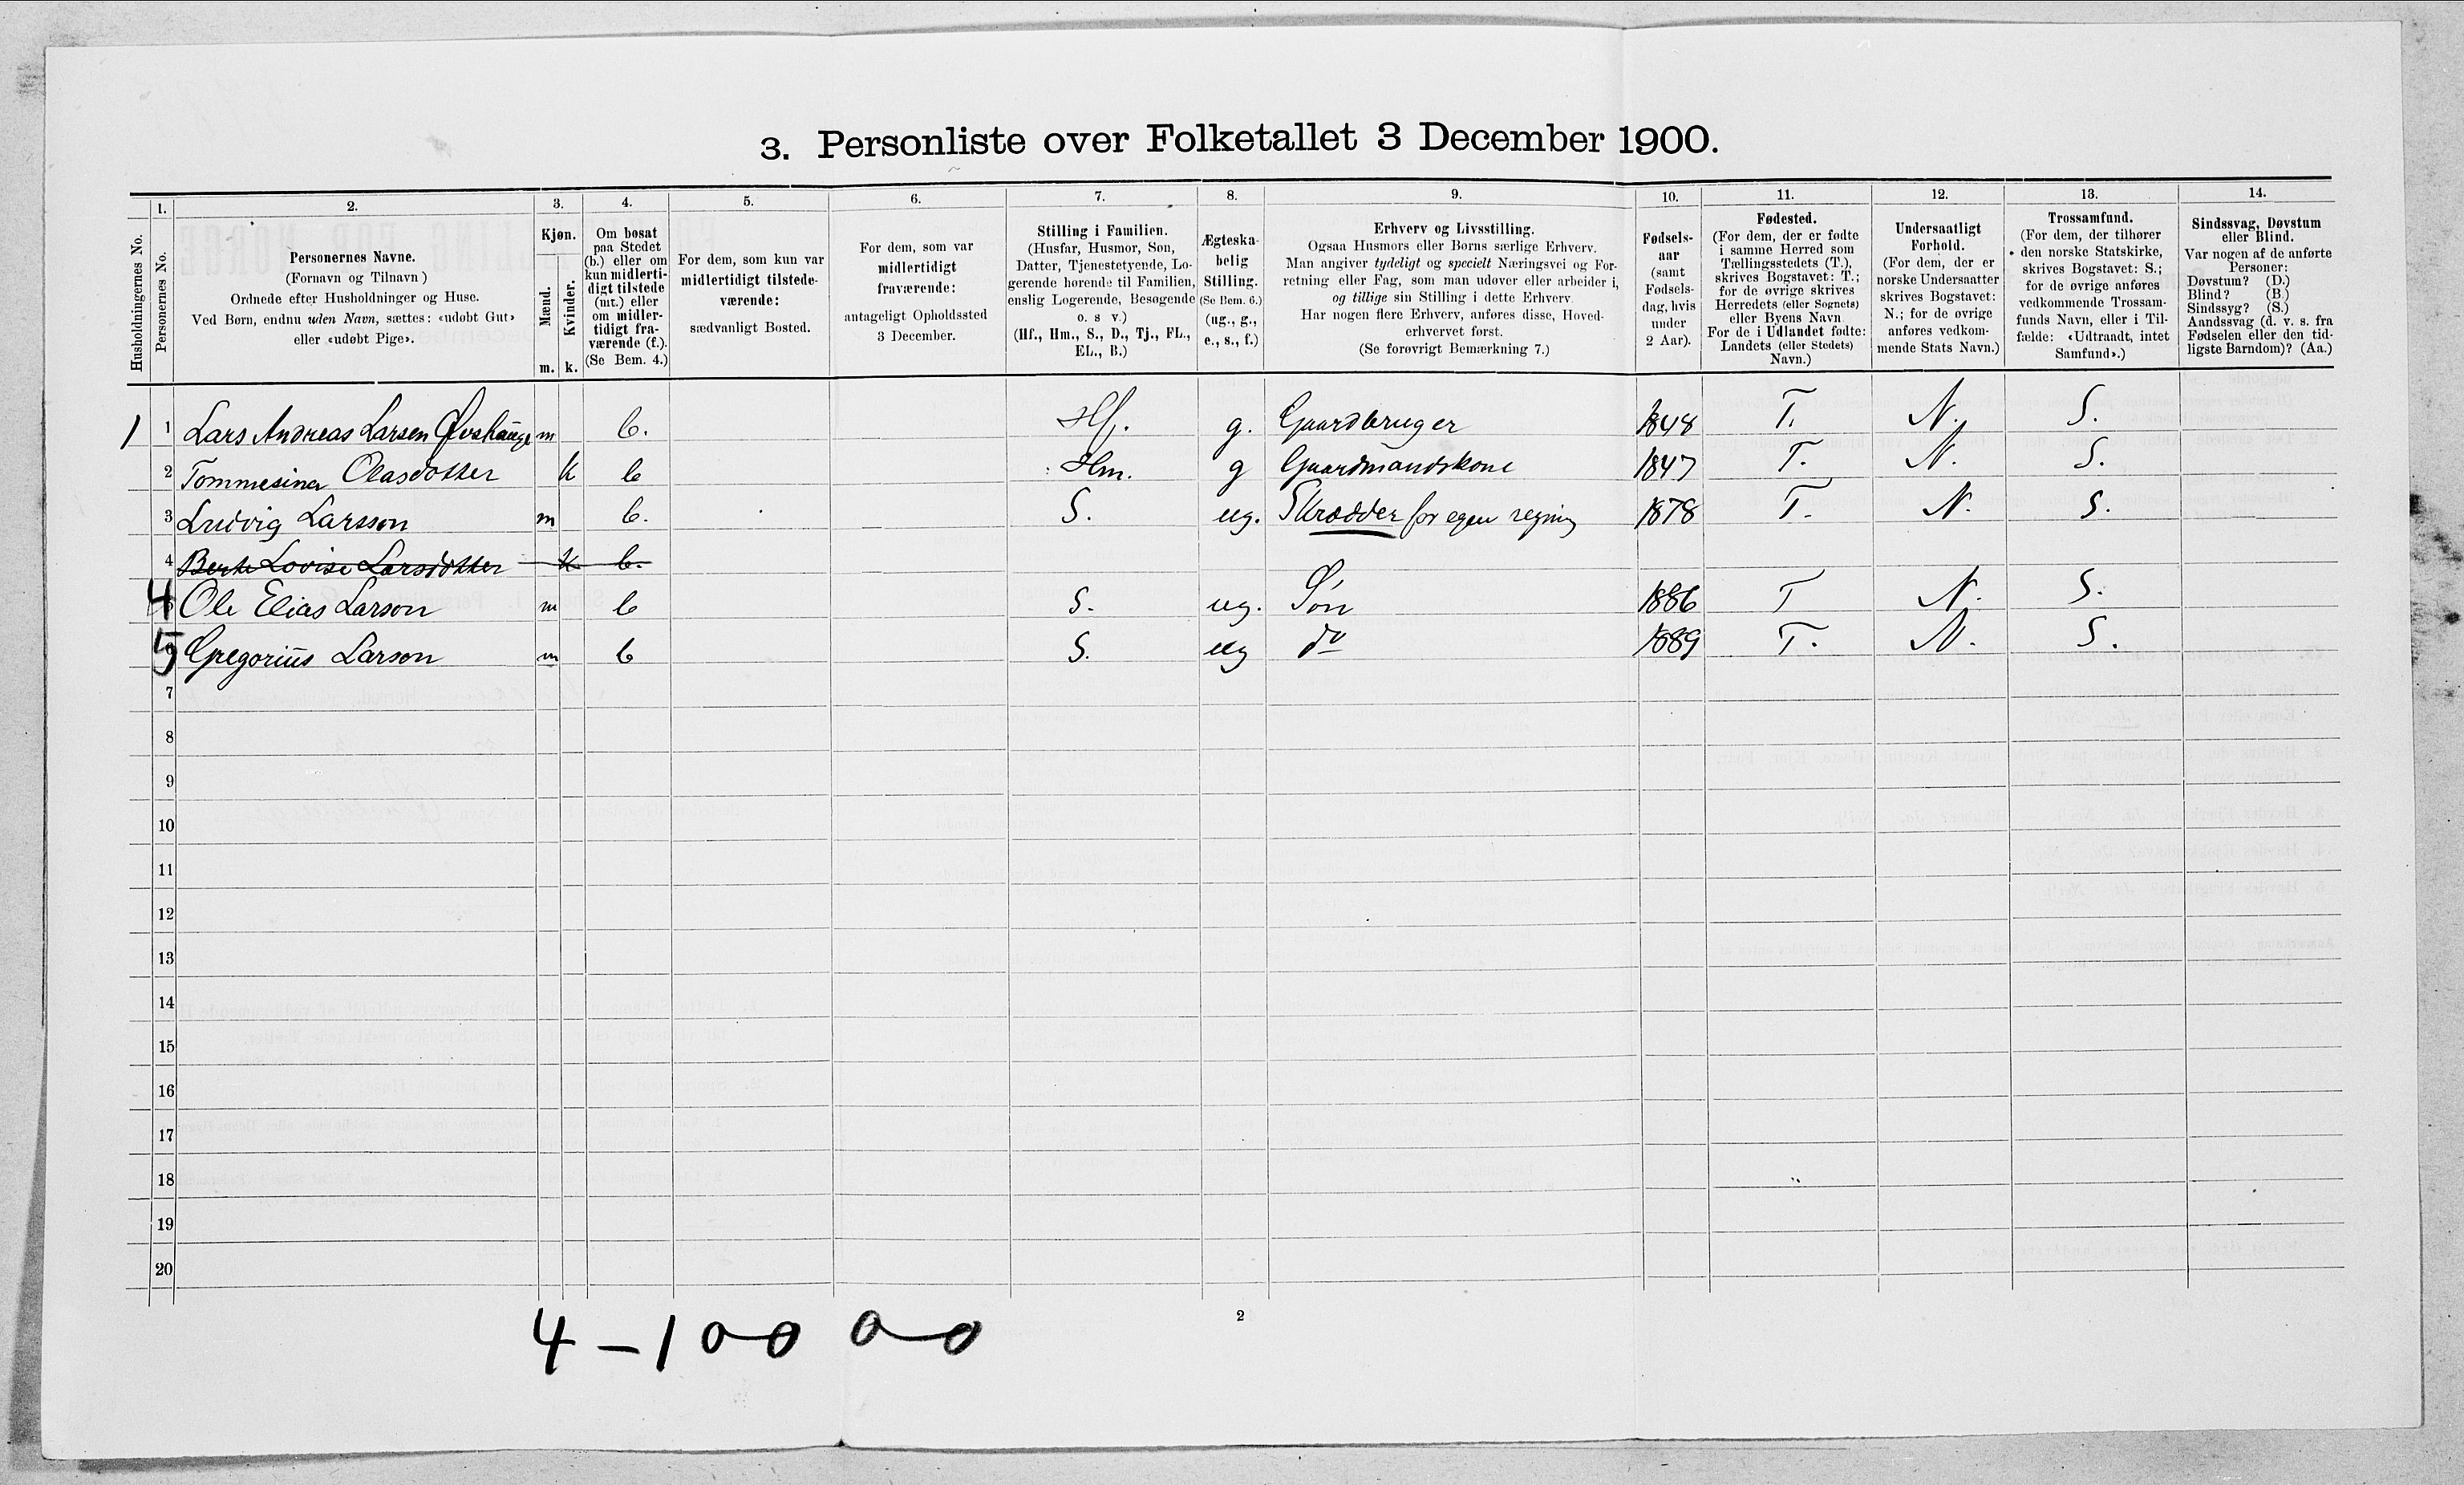 3. Personliste over Folketallet 3 December 1900.
1. 2. 3. 4. 5. 6. 7. 8. 9. 10. 11. 12. 13. 14.
Husholdningernes No.
Personernes No.
Personernes Navne.
(Fornavn og Tilnavn)
Ordnede efter Husholdninger og Huse.
Ved Børn, endnu uden Navn, sættes: «udøbt Gut»
eller «udøbt Pige».
Kjøn.
Mænd.
Kvinder.
m. k.
Om bosat
paa Stedet
(b.) eller om
kun midlerti-
digt tilstede
(mt.) eller
om midler-
tidigt fra-
værende (f.).
(Se Bem. 4.)
For dem, som kun var
midlertidigt tilstede-
værende:
sædvanligt Bosted.
For dem, som var
midlertidigt
fraværende:
antageligt Opholdssted
3 December.
Stilling i Familien.
(Husfar, Husmor, Søn,
Datter, Tjenestetyende, Lo-
gerende hørende til Familien,
enslig Logerende, Besøgende
o. s v.)
(Hf., Hm., S., D., Tj., FL.,
EL., B.)
Ægteska-
belig
Stilling.
(Se Bem. 6.)
(ug., g.,
e., s., f.)
Erhverv og Livsstilling.
Ogsaa Husmors eller Børns særlige Erhverv.
Man angiver tydeligt og specielt Næringsvei og For-
retning eller Fag, som man udøver eller arbeider i,
og tillige sin Stilling i dette Erhverv
Har nogen flere Erhverv, anføres disse, Hoved-
erhvervet først.
(Se forøvrigt Bemærkning 7.)
Fødsels-
aar
(samt
Fødsels-
dag, hvis
under
2 Aar).
Fødested.
(For dem, der er fødte
i samme Herred som
Tællingsstedets (T.),
skrives Bogstavet: T.;
for de øvrige skrives
Herredets (eller Sognets)
eller Byens Navn
For de i Udlandet fødte:
Landets (eller Stedets)
Navn.)
Undersaatligt
Forhold.
(For dem, der er
norske Undersaatter
skrives Bogstavet:
N.; for de øvrige
anføres vedkom-
mende Stats Navn.)
Trossamfund.
(For dem, der tilhører
den norske Statskirke,
skrives Bogstavet: S.;
for de øvrige anføres
vedkommende Trossam-
funds Navn, eller i Til-
fælde: «Udtraadt, intet
Samfund».)
Sindssvag, Døvstum
eller Blind.
Var nogen af de anførte
Personer:
Døvstum? (D.)
Blind? (B.)
Sindssyg? (S.)
Aandssvag (d. v. s. fra
Fødselen eller den tid-
ligste Barndom)? (Aa.)
1 1 Lars Andreas Larsen m b. Hf. g. Gaardbruger 1848 T. N. S.
2 Tommesina Olasdotter k b Hm. g Gaardmandskone 1847 T. N. S.
3 Ludvig Larsson m b. S. ug. Skrædder for egen regning 1878 T. N. S.
4 Berte Lovise Larsdotter k b.
4 Ole Elias Larson m b S. ug. Søn 1886 T N. S.
5 Gregorius Larson m b S. ug do 1889 T. N. S.
7
8
9
10
11
12
13
14
15
16
17
18
19
20
2
4 – 1 0 0 0 0